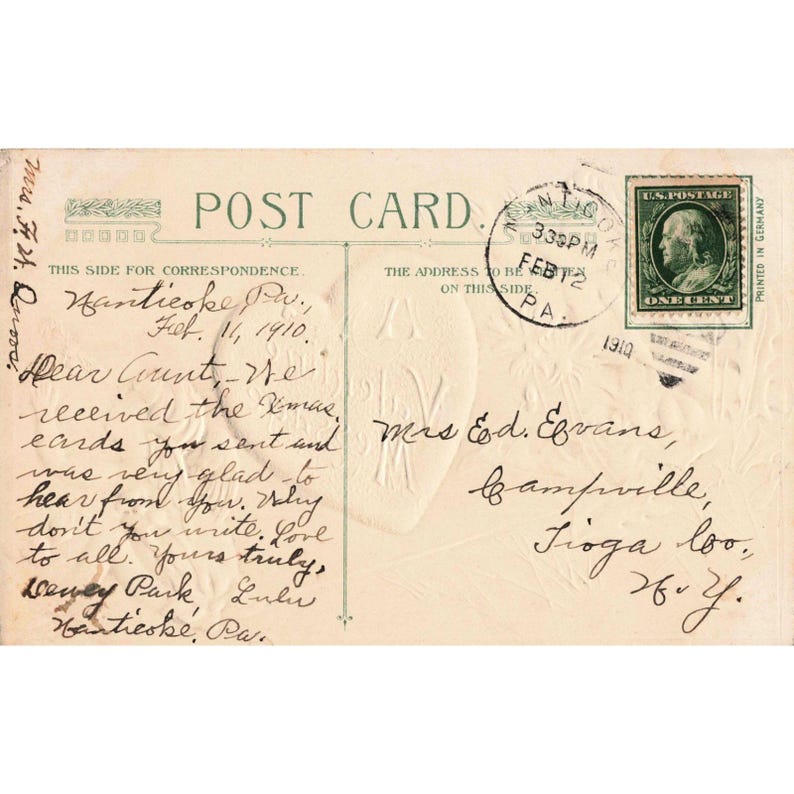 POST CARD.
THIS SIDE FOR CORRESPONDENCE.
THE ADDRESS TO BE WRITTEN
ON THIS SIDE.
Nanticoke, Pa.,
Feb. 11, 1910.
Dear Aunt,- We
received the Xmas.
cards you sent and
was very glad to
hear from you. Why
don't you write. Love
to all. Yours truly,
Dewey Park, Lulu
Nanticoke, Pa.
Mrs. F. H.
NANTICOKE
330PM
FEB 12
PA.
1910
U.S. POSTAGE
ONE CENT
PRINTED IN GERMANY
Mrs Ed. Evans,
Campville,
Tioga Co.,
N.Y.